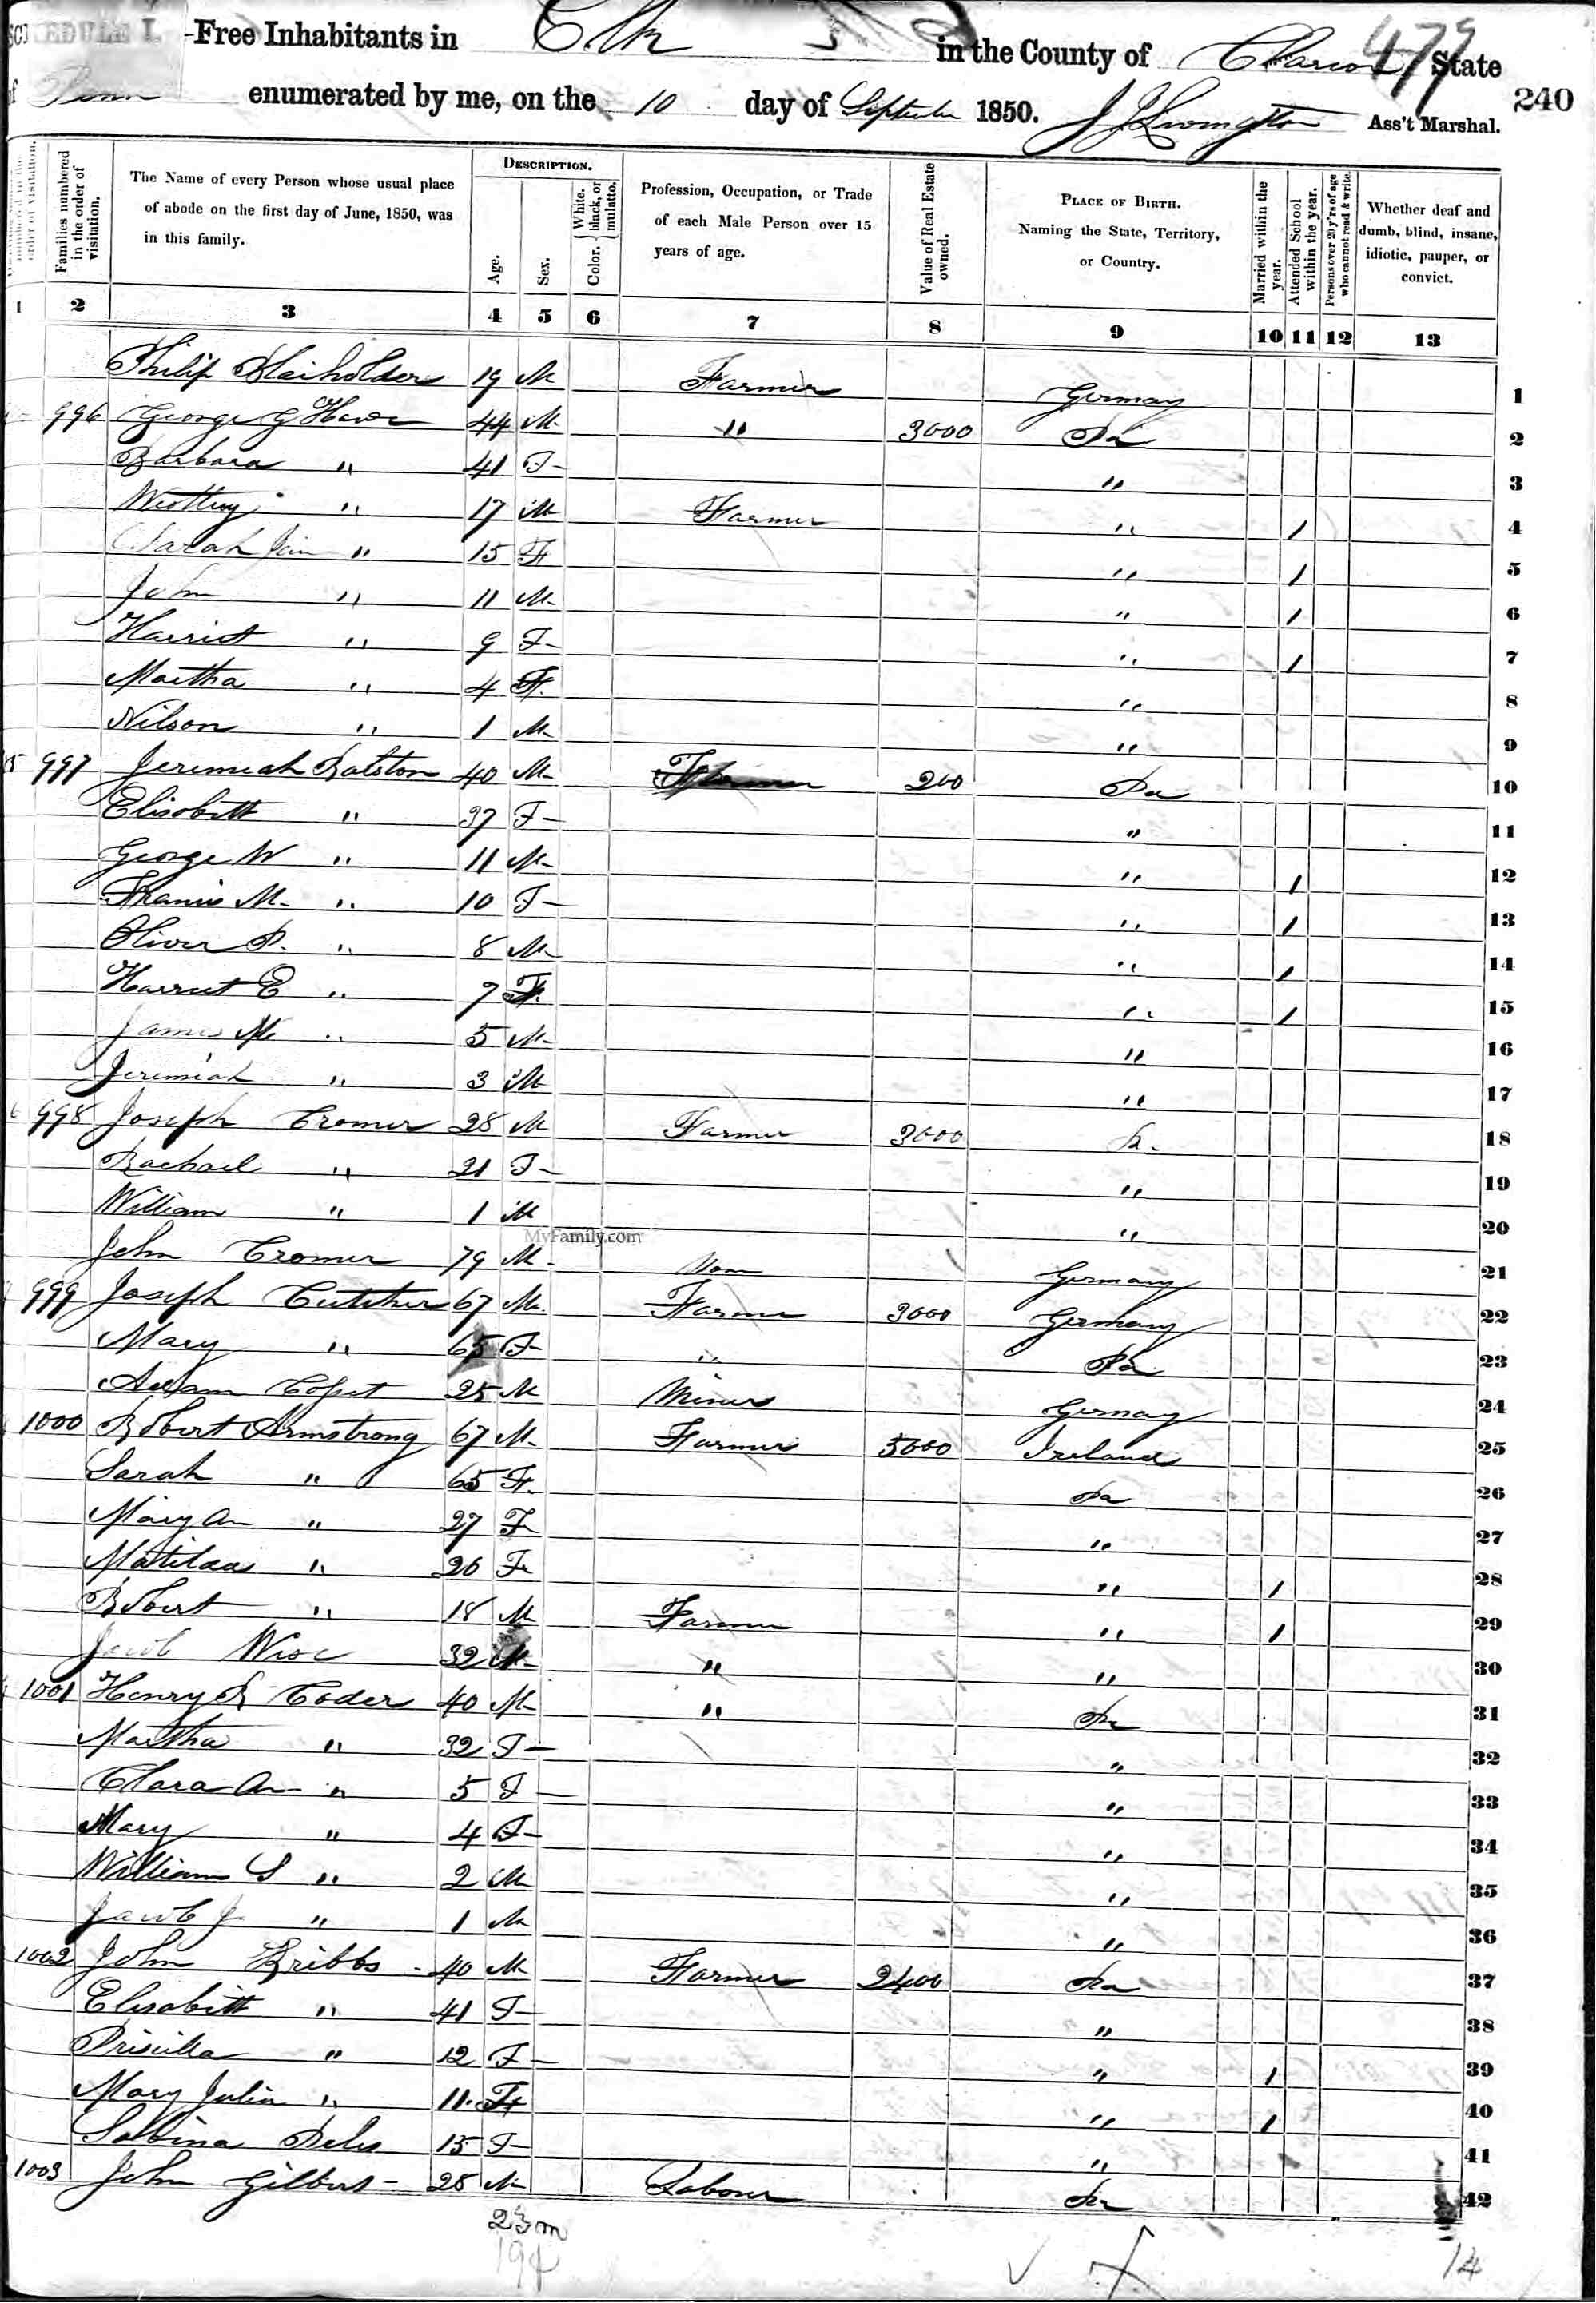 SCHEDULE I. -Free Inhabitants in Elk in the County of Clarion State 479
of Penn enumerated by me, on the 10 day of September 1850. J J Livingston Ass't Marshal. 240
Families numbered in the order of visitation. The Name of every Person whose usual place of abode on the first day of June, 1850, was in this family. DESCRIPTION. Age. Sex. Color. White, black, or mulatto. Profession, Occupation, or Trade of each Male Person over 15 years of age. Value of Real Estate owned. PLACE OF BIRTH. Naming the State, Territory, or Country. Married within the year. Attended School within the year. Persons over 20 y'rs of age who cannot read & write. Whether deaf and dumb, blind, insane, idiotic, pauper, or convict.
1 2 3 4 5 6 7 8 9 10 11 12 13
Philip 19 M Farmer Germay 1
996 George G 44 M " 3000 Pa 2
Barbara " 41 F " 3
" 17 M Farmer " 1 4
Sarah Jain " 15 F " 1 5
John " 11 M " 1 6
Harriet " 9 F " 1 7
Martha " 4 F " 8
Nilson " 1 M " 9
997 Jeremiah Ralston 40 M 200 Pa 10
Elisabett " 37 F " 11
George W " 11 M " 1 12
Francis M. " 10 F " 1 13
Oliver P. " 8 M " 1 14
Harriet E " 7 F " 1 15
James M " 5 M " 16
Jeremiah " 3 M " 17
998 Joseph Cromer 28 M Farmer 3000 Pa 18
Rachael " 21 F " 19
William " 1 M " 20
MyFamily.com
John Cromer 79 M Non Germany 21
999 Joseph 67 M Farmer 3000 Germany 22
Mary " 65 F " Pa 23
Adam 25 M Miner Germay 24
1000 Robert Armstrong 67 M Farmer 5000 Ireland 25
Sarah " 65 F Pa 26
Mary An " 27 F " 27
Matilda " 20 F " 1 28
Robert " 18 M Farmer " 1 29
Jacob Wise 32 M " " 30
1001 Henry R Coder 40 M " Pa 31
Martha " 32 F " 32
Clara An " 5 F " 33
Mary " 4 F " 34
William S " 2 M " 35
Jacob J. " 1 M " 36
1002 John Kribbs 40 M Farmer 2400 Pa 37
Elisabett " 41 F " 38
Priscilla " 12 F " 1 39
Mary Julia " 11 F " 1 40
Sabina 15 F " 41
1003 John Gilbert 28 M Labourer Pa 42
23m
19f
14